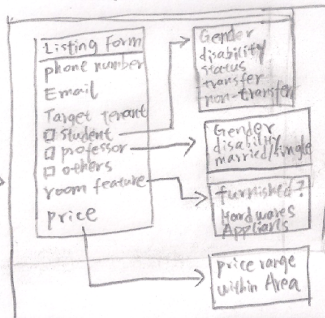 Listing Form
phone number
Email
Target tenant
student
professor
others
room feature
price
Gender
disability
status
transfer
non-transfer
Gender
disability
married/single
furnished?
Hardwares
Appliants
price range
within Area